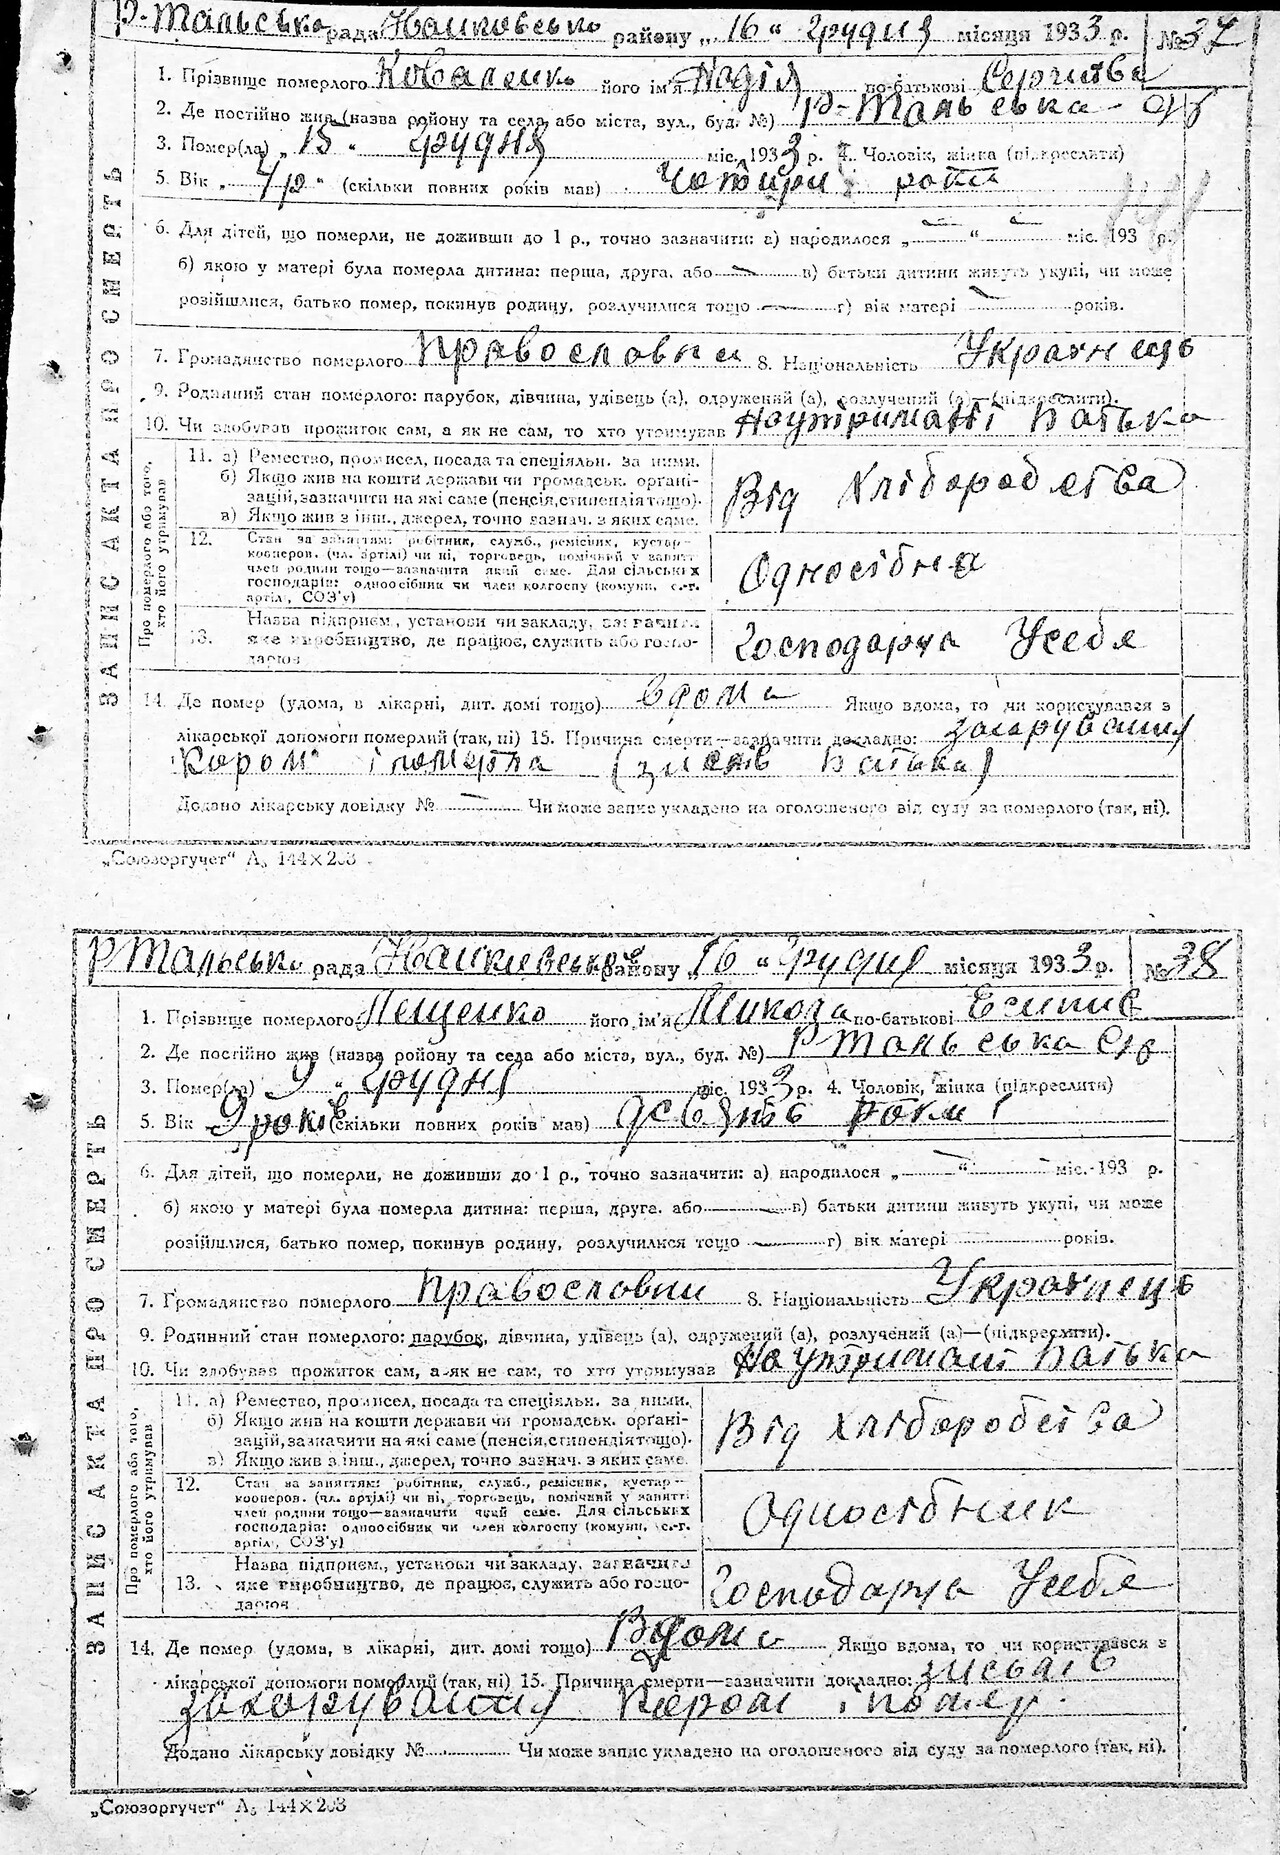 Р-Тальсько рада Іванковсько району „16“ грудня місяця 1933 р. № 37
ЗАПИС АКТА ПРО СМЕРТЬ
1. Прізвище померлого Коваленко його ім'я Надія по-батькові
2. Де постійно жив (назва району та села, або міста, вул., буд. №) Р-Тальська
3. Помер(ла) „15“ грудня міс. 1933 р. 4. Чоловік, жінка (підкреслити)
5. Вік „4р“ (скільки повних років мав) Чотири роки
6. Для дітей, що померли, не доживши до 1 р., точно зазначити: а) народилося „ “ міс. 193 р.
б) якою у матері була померла дитина: перша, друга. або в) батьки дитини живуть укупі, чи може
розійшлися, батько помер, покинув родину, розлучилися тощо г) вік матері років.
7. Громадянство померлого православни 8. Національність Украинець
9. Родинний стан померлого: парубок, дівчина, удівець (а), одружений (а), розлучений (а)—(підкреслити).
10. Чи здобував прожиток сам, а як не сам, то хто утримував На утриманні батька
Про померлого або того, хто його утримував
11. а) Ремество, промисел, посада та спеціяльн. за ними.
б) Якщо жив на кошти держави чи громадськ. організацій, зазначити на які саме (пенсія, стипендія тощо).
в) Якщо жив з інш., джерел, точно зазнач. з яких саме.
Від хліборобства
12. Стан за заняттям: робітник, служб., ремісник, кустар-
кооперов. (чл. артілі) чи ні, торговець, помічний у занятті
член родини тощо—зазначити який саме. Для сільських
господарів: одноосібник чи член колгоспу (комуни, с.-г.
артілі, СОЗ'у)
13. Назва підприєм., установи чи закладу, зазначити
яке виробництво, де працює, служить або госпо-
дарює
Господарує У себе
14. Де помер (удома, в лікарні, дит. домі тощо) вдома Якщо вдома, то чи користувався з
лікарської допомоги померлий (так, ні) 15. Причина смерти—зазначити докладно:
і померла
Додано лікарську довідку № Чи може запис укладено на оголошеного від суду за померлого (так, ні).
„Союзоргучет“ А₅ 144×203
Р Тальсько рада району „16“ грудня місяця 1933 р. № 38
ЗАПИС АКТА ПРО СМЕРТЬ
1. Прізвище померлого Лещенко його ім'я Микола по-батькові
2. Де постійно жив (назва району та села або міста, вул., буд. №) Р Тальська
3. Помер(ла) 9 „ грудня міс. 1933 р. 4. Чоловік, жінка (підкреслити)
5. Вік 9 років (скільки повних років мав) девять роки
6. Для дітей, що померли, не доживши до 1 р., точно зазначити: а) народилося „ “ міс. 193 р.
б) якою у матері була померла дитина: перша, друга. або в) батьки дитини живуть укупі, чи може
розійшлися, батько помер, покинув родину, розлучилися тощо г) вік матері років.
7. Громадянство померлого православни 8. Національність Украинець
9. Родинний стан померлого: парубок, дівчина, удівець (а), одружений (а), розлучений (а)—(підкреслити).
10. Чи здобував прожиток сам, а як не сам, то хто утримував На утримані батька
Про померлого або того, хто його утримував
11. а) Ремество, промисел, посада та спеціяльн. за ними.
б) Якщо жив на кошти держави чи громадськ. органі-
зацій, зазначити на які саме (пенсія, стипендія тощо).
в) Якщо жив з інш., джерел, точно зазнач. з яких саме.
Від хліборобства
12. Стан за заняттям: робітник, служб., ремісник, кустар-
кооперов. (чл. артілі) чи ні, торговець, помічний у занятті
член родини тощо—зазначити який саме. Для сільських
господарів: одноосібник чи член колгоспу (комуни, с.-г.
артілі, СОЗ'у)
Односібник
13. Назва підприєм., установи чи закладу, зазначити
яке виробництво, де працює, служить або госпо-
дарює
Господарує У себе
14. Де помер (удома, в лікарні, дит. домі тощо) Вдома Якщо вдома, то чи користувався з
лікарської допомоги померлий (так, ні) 15. Причина смерти—зазначити докладно:
і помер.
Додано лікарську довідку № Чи може запис укладено на оголошеного від суду за померлого (так, ні).
„Союзоргучет“ А₅ 144×203